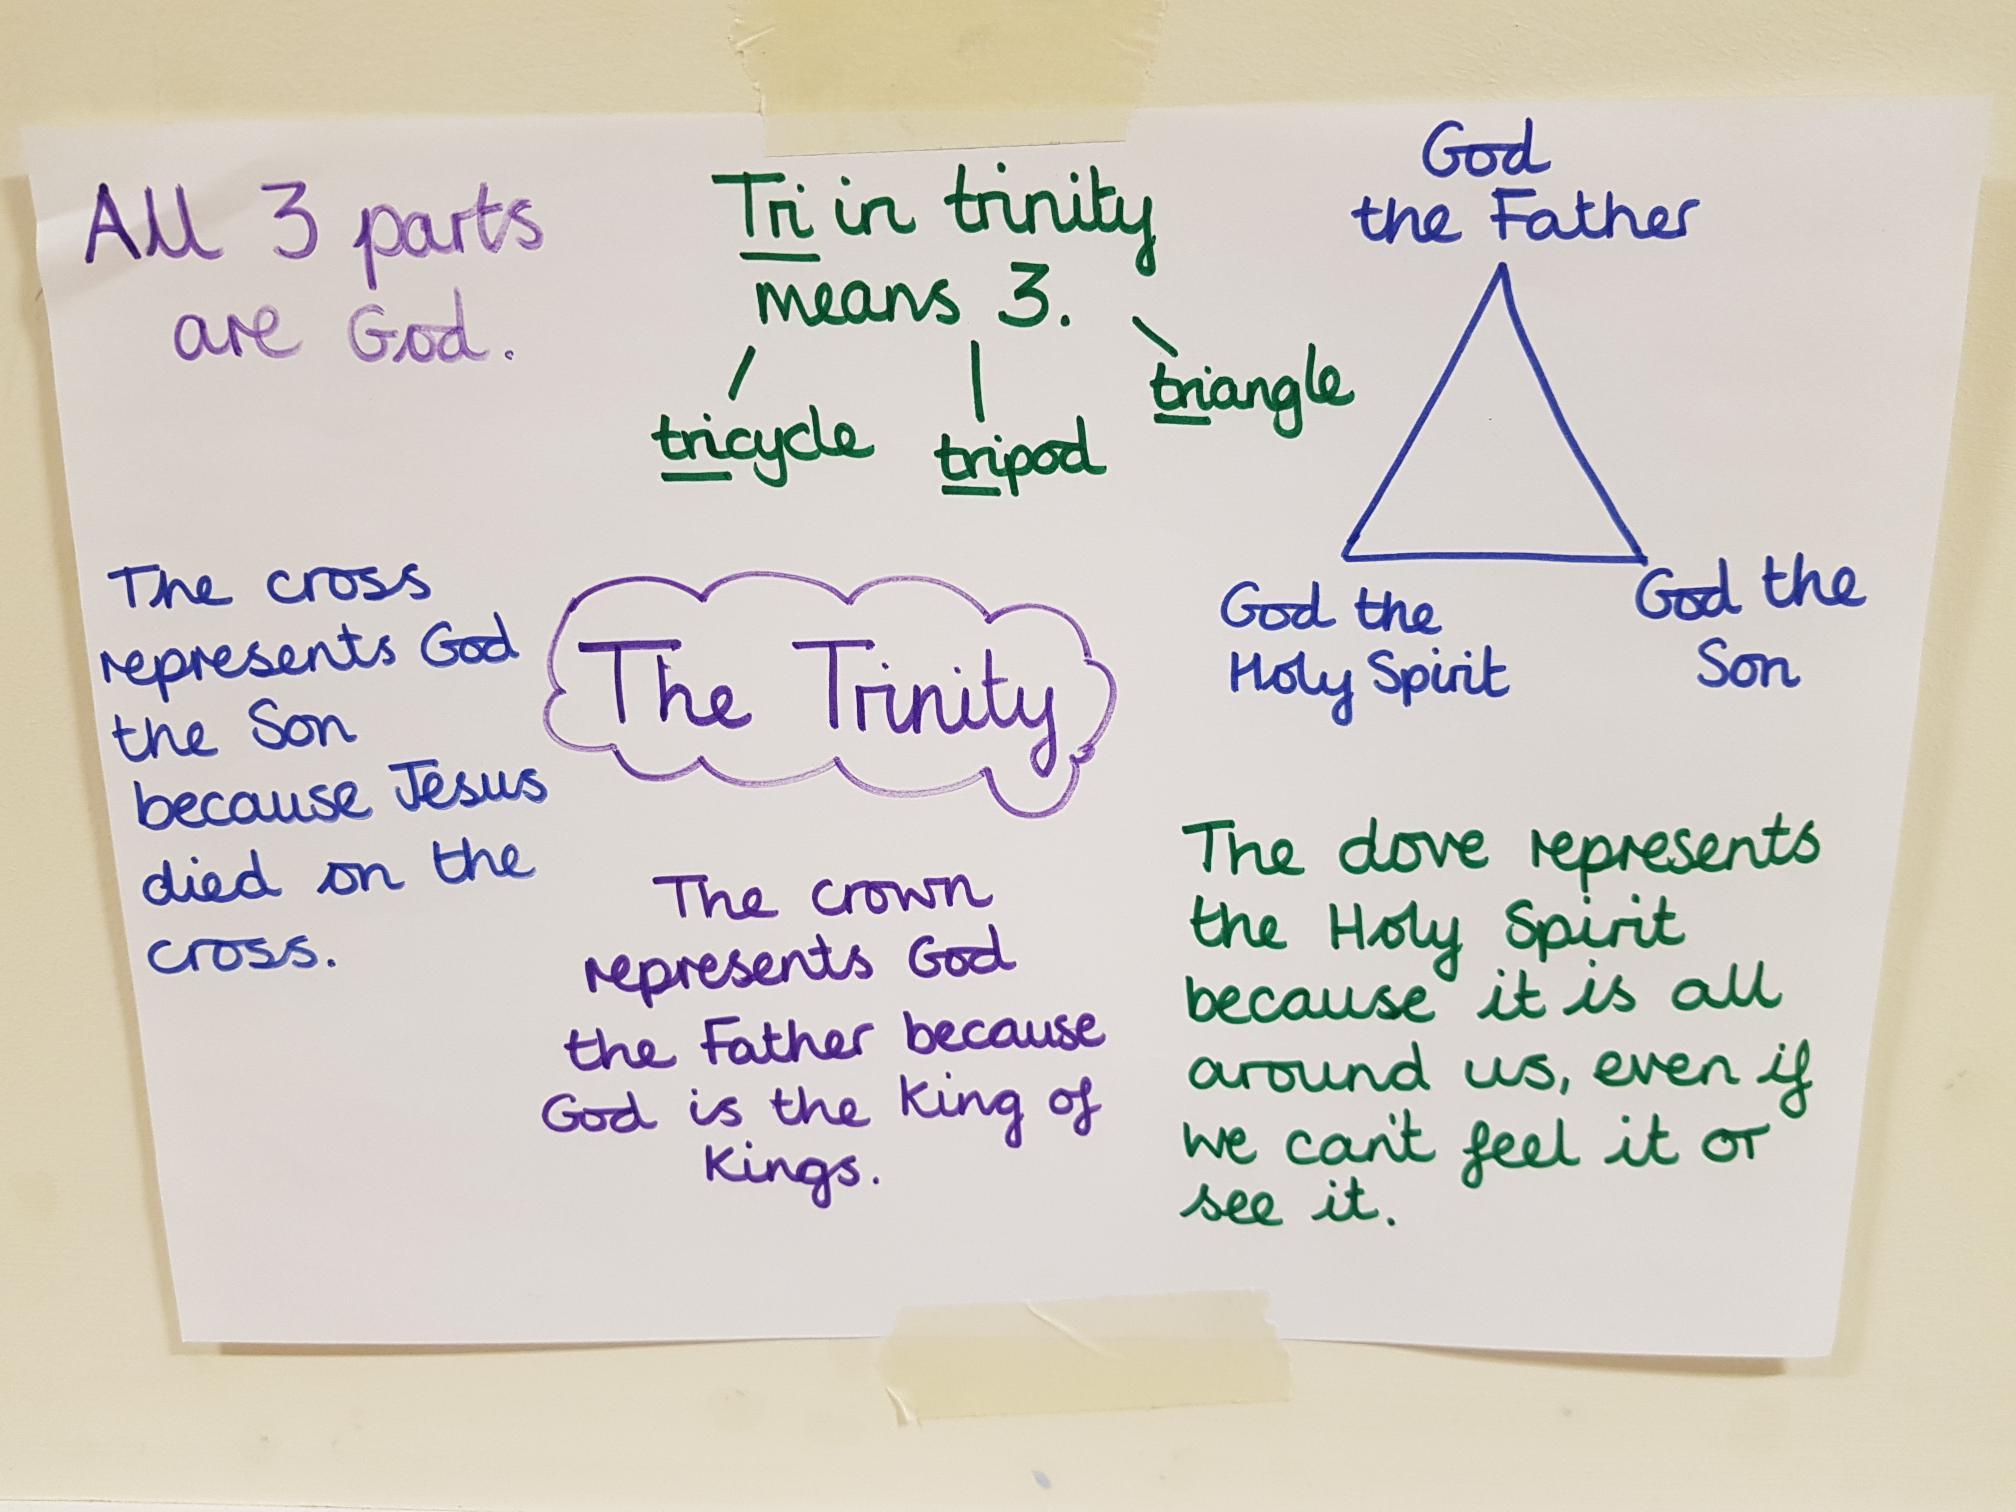 All 3 parts
are God.
Tri in trinity
means 3.
tricycle
tripod
triangle
God
the Father
God the
Holy Spirit
God the
Son
The cross
represents God
the Son
because Jesus
died on the
cross.
The Trinity
The crown
represents God
the Father because
God is the King of
Kings.
The dove represents
the Holy Spirit
because it is all
around us, even if
we can't feel it or
see it.